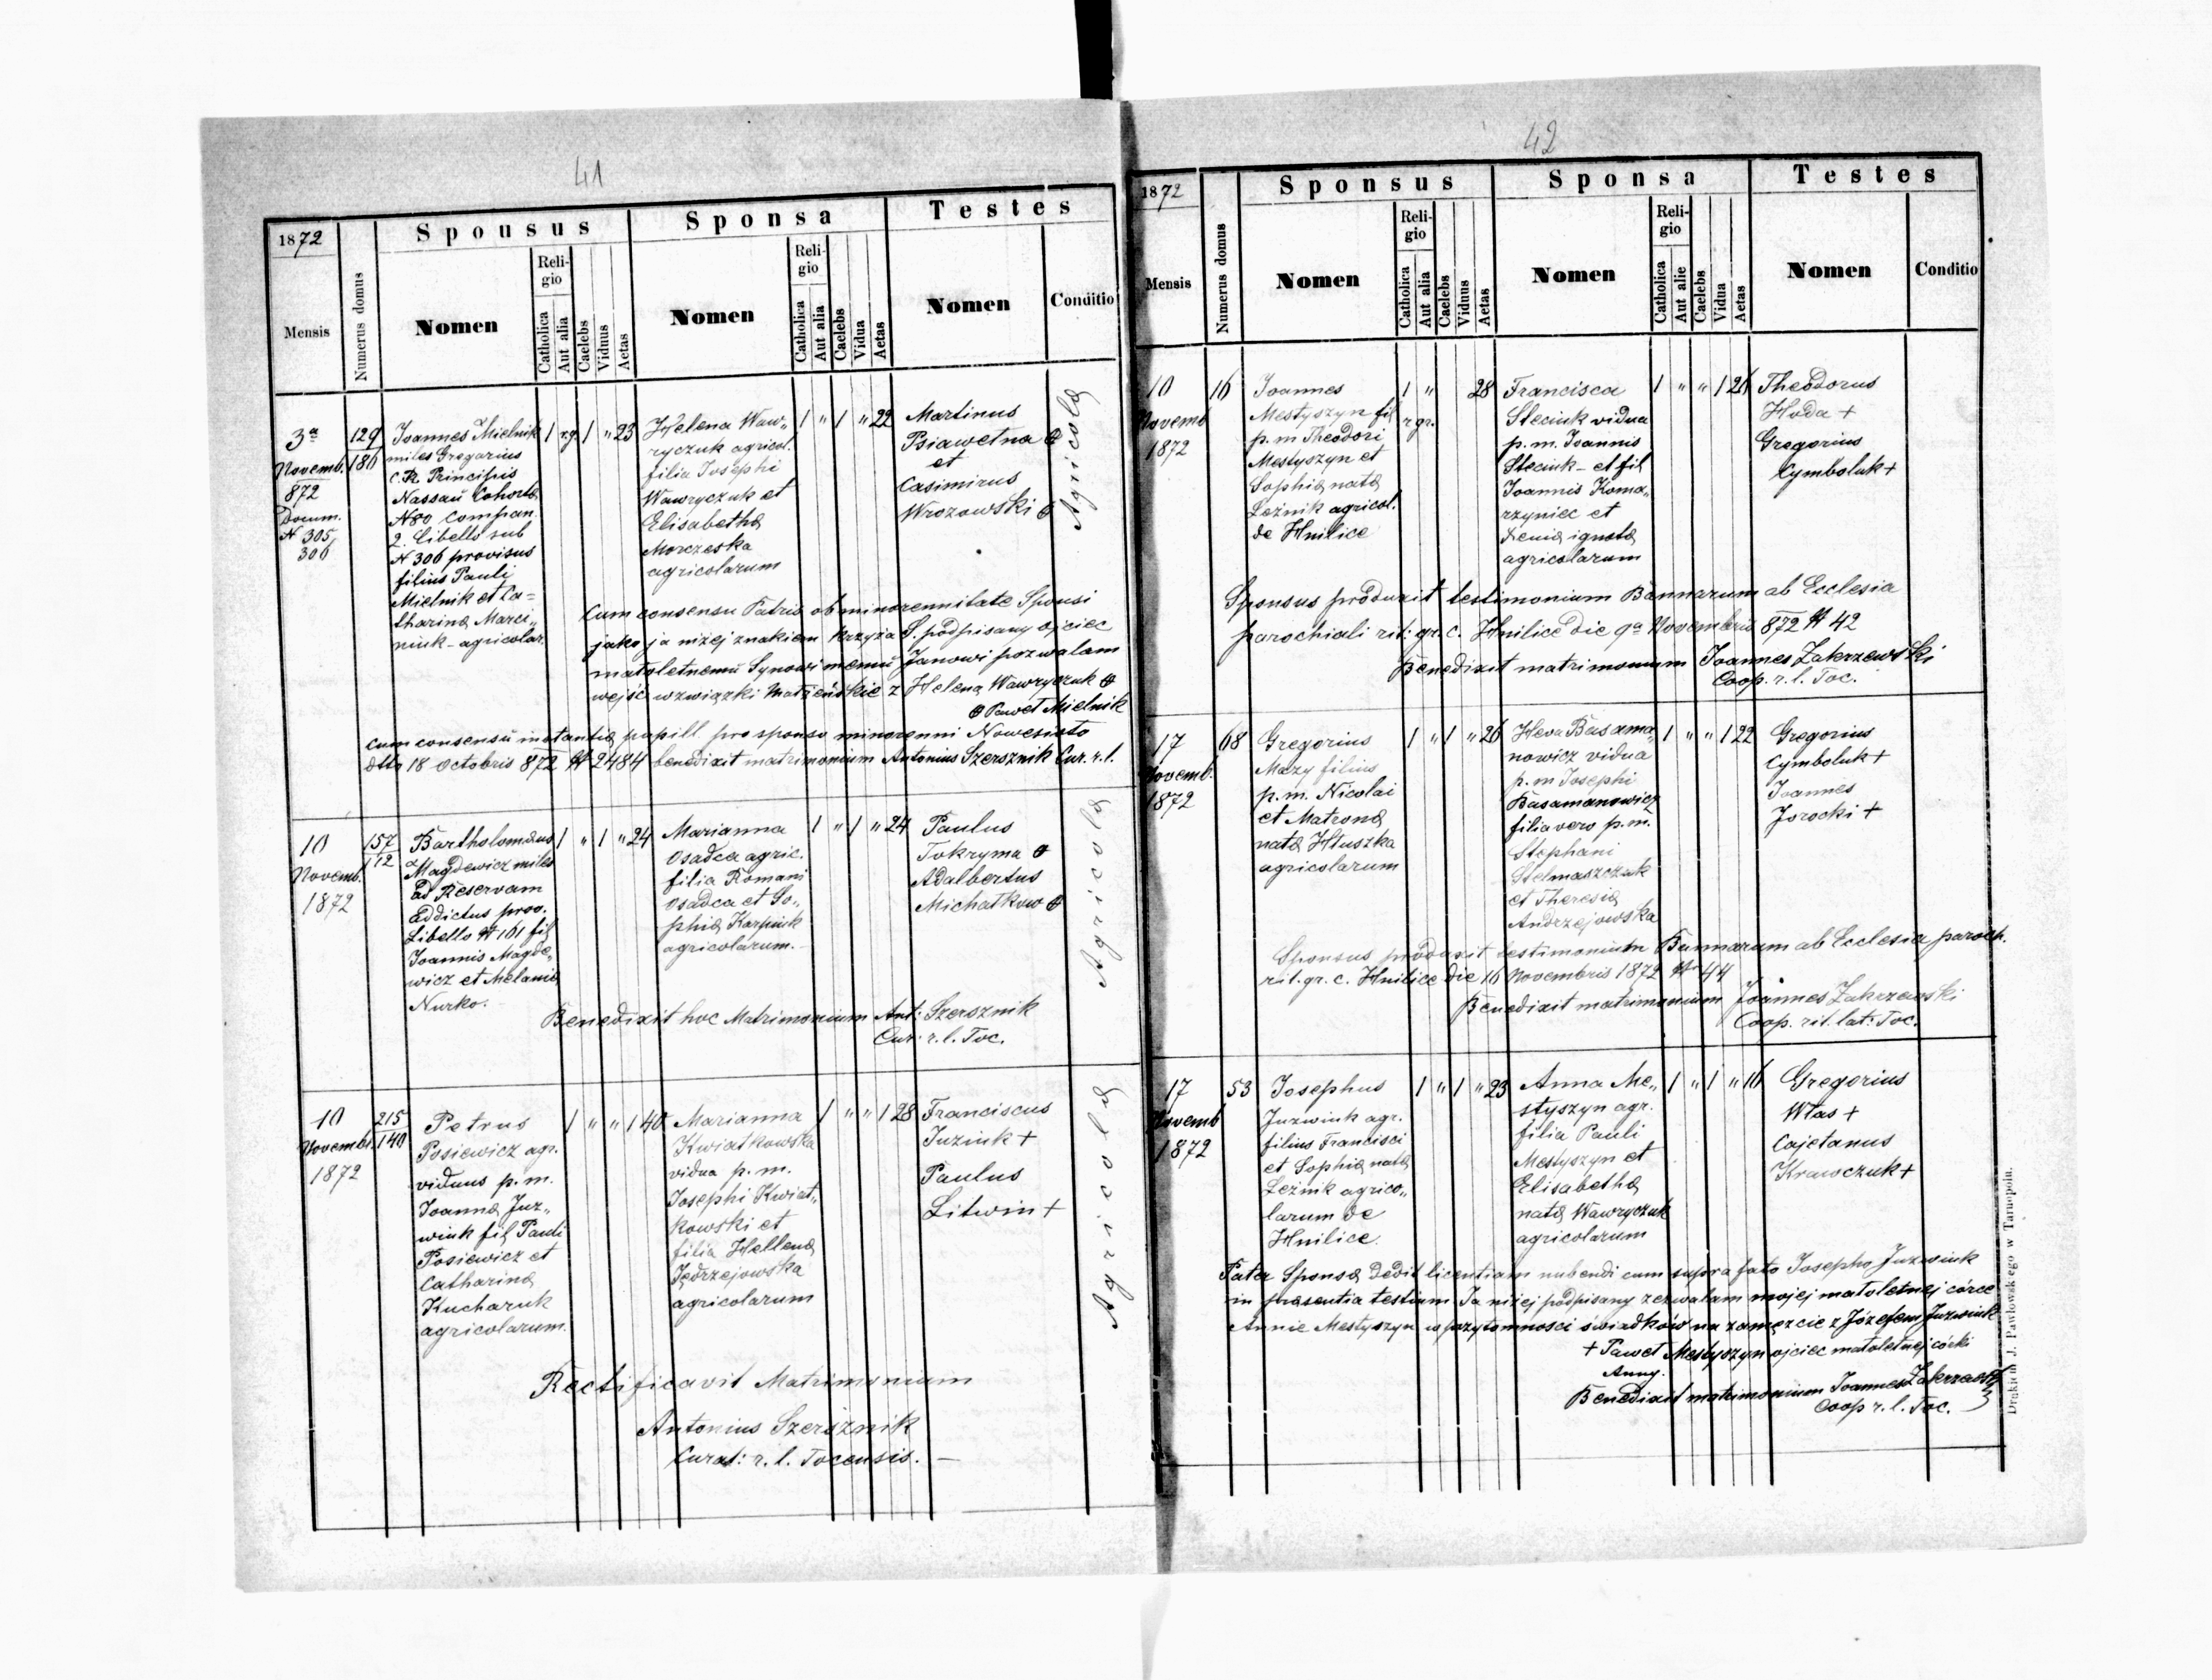 41
1872
Spousus
Sponsa
Testes
Mensis
Numerus domus
Nomen
Religio
Catholica
Aut alia
Caelebs
Viduus
Aetas
Nomen
Religio
Catholica
Aut alia
Caelebs
Vidua
Aetas
Nomen
Conditio
3a
Novemb.
872
Docum.
N 305
306
129
180
Joannes Mielnik
miles Gregarius
C.R. Principis
Nassau Cohorta
N80 Compan.
2. Libello sub
N 306 provisus
filius Pauli
Mielnik et Ca=
tharina Marci„
niuk - agricolar.
1 r.g 1 „ 23
Helena Waw„
ryczuk agricol.
filia Josephi
Wawryczuk et
Elisabetha
Morczeska
agricolarum
1 „ 1 „ 22
Martinus
Psiawetna
et
Casimirus
Wrozowski
Agricolæ
Cum consensu Patris ob minorennitate Sponsi
jako ja niżej znakiem krzyża S. podpisany ojciec
małoletnemu Synowi memu Janowi pozwalam
wejść w związki Małżeńskie z Heleną Wawryczuk
Paweł Mielnik
cum consensu instantiæ pupill pro sponso minorenni Nowesioło
dtto 18 Octobris 872 N 2484 benedixit matrimonium Antonius Szersznik Cur. r. l.
10
Novemb.
1872
157
112
Bartholomæus
Magdewicz miles
ad Reservam
Eddictus prov.
Libello N 161 fil
Joannis Magde„
wicz et Melania
Nurko.
1 „ 1 „ 24
Marianna
Osadca agric.
filia Romani
Osadca et So„
phia Karpiuk
agricolarum.
1 „ 1 „ 24
Paulus
Tokryma
Adalbertus
Michałkow
Agricolæ
Benedixit hoc Matrimonium Ant: Szersznik
Cur: r. l. Toc.
10
Novembr.
1872
215
140
Petrus
Posiewicz agr.
viduus p. m.
Joanna Juz„
wiuk fil Pauli
Posiewicz et
Catharina
Kucharuk
agricolarum.
1 „ „ 1 40
Marianna
Kwiatkowska
vidua p. m.
Josephi Kwiat„
kowski et
filia Hellena
Jędrzejowska
agricolarum
1 „ „ 1 28
Franciscus
Juziuk +
Paulus
Litwin +
Agricolæ
Rectificavit Matrimonium
Antonius Szersznik
Curat: r. l. Tocensis. —
42
1872
Sponsus
Sponsa
Testes
Mensis
Numerus domus
Nomen
Religio
Catholica
Aut alia
Caelebs
Viduus
Aetas
Nomen
Religio
Catholica
Aut alie
Caelebs
Vidua
Aetas
Nomen
Conditio
10
Novemb
1872
16
Joannes
Mestyszyn fil
p. m Theodori
Mestyszyn et
Sophia nata
Leżnik agricol.
de Hnilice
1 „ 28
r gr.
Francisca
Steciuk vidua
p. m. Joannis
Steciuk - et fil
Joannis Koma„
rzyniec et
Xenia ignota
agricolarum
1 „ „ 1 26
Theodorus
Hoda +
Gregorius
Cymboluk +
Sponsus produxit testimonium Bannarum ab Ecclesia
parochiali rit: gr. c. Hnilice die 9a Novembris 872 N 42
Benedixit matrimonium Joannes Zakrzewski
Coop. r. l. Toc.
17
Novemb.
1872
68
Gregorius
Mazy filius
p. m. Nicolai
et Matrona
nata Hłuszka
agricolarum
1 „ 1 „ 26
Heva Basama„
nowicz vidua
p. m Josephi
Basamanowicz
filia vero p. m.
Stephani
Stelmaszczuk
et Theresia
Andrzejowska
1 „ „ 1 22
Gregorius
Cymboluk +
Joannes
Jorocki +
Sponsus produxit testimonium Bannarum ab Ecclesia paroch.
rit. gr. c. Hnilice die 16 Novembris 1872 N 44
Benedixit matrimonium Joannes Zakrzewski
Coop. rit. lat: Toc.
17
Novemb
1872
53
Josephus
Juzwiuk agr.
filius Francisci
et Sophia nata
Leżnik agrico„
larum de
Hnilice.
1 „ 1 „ 23
Anna Me„
styszyn agr.
filia Pauli
Mestyszyn et
Elisabetha
nata Wawryczuk
agricolarum
1 „ 1 „ 16
Gregorius
Włas +
Cajetanus
Krawczuk +
Pater Sponsa dedit licentiam nubendi cum supra fato Josepho Juzwiuk
in præsentia testium Ja niżej podpisany zezwalam mojej małoletnej córce
Annie Mestyszyn w przytomności świadków na zamęzcie z Józefem Juzwiuk
+ Paweł Mestyszyn ojciec małoletnej córki
Anny.
Benedixit matrimonium Joannes Zakrzewski
Coop r. l. Toc.
Drukiem J. Pawłowskiego w Tarnopolu.